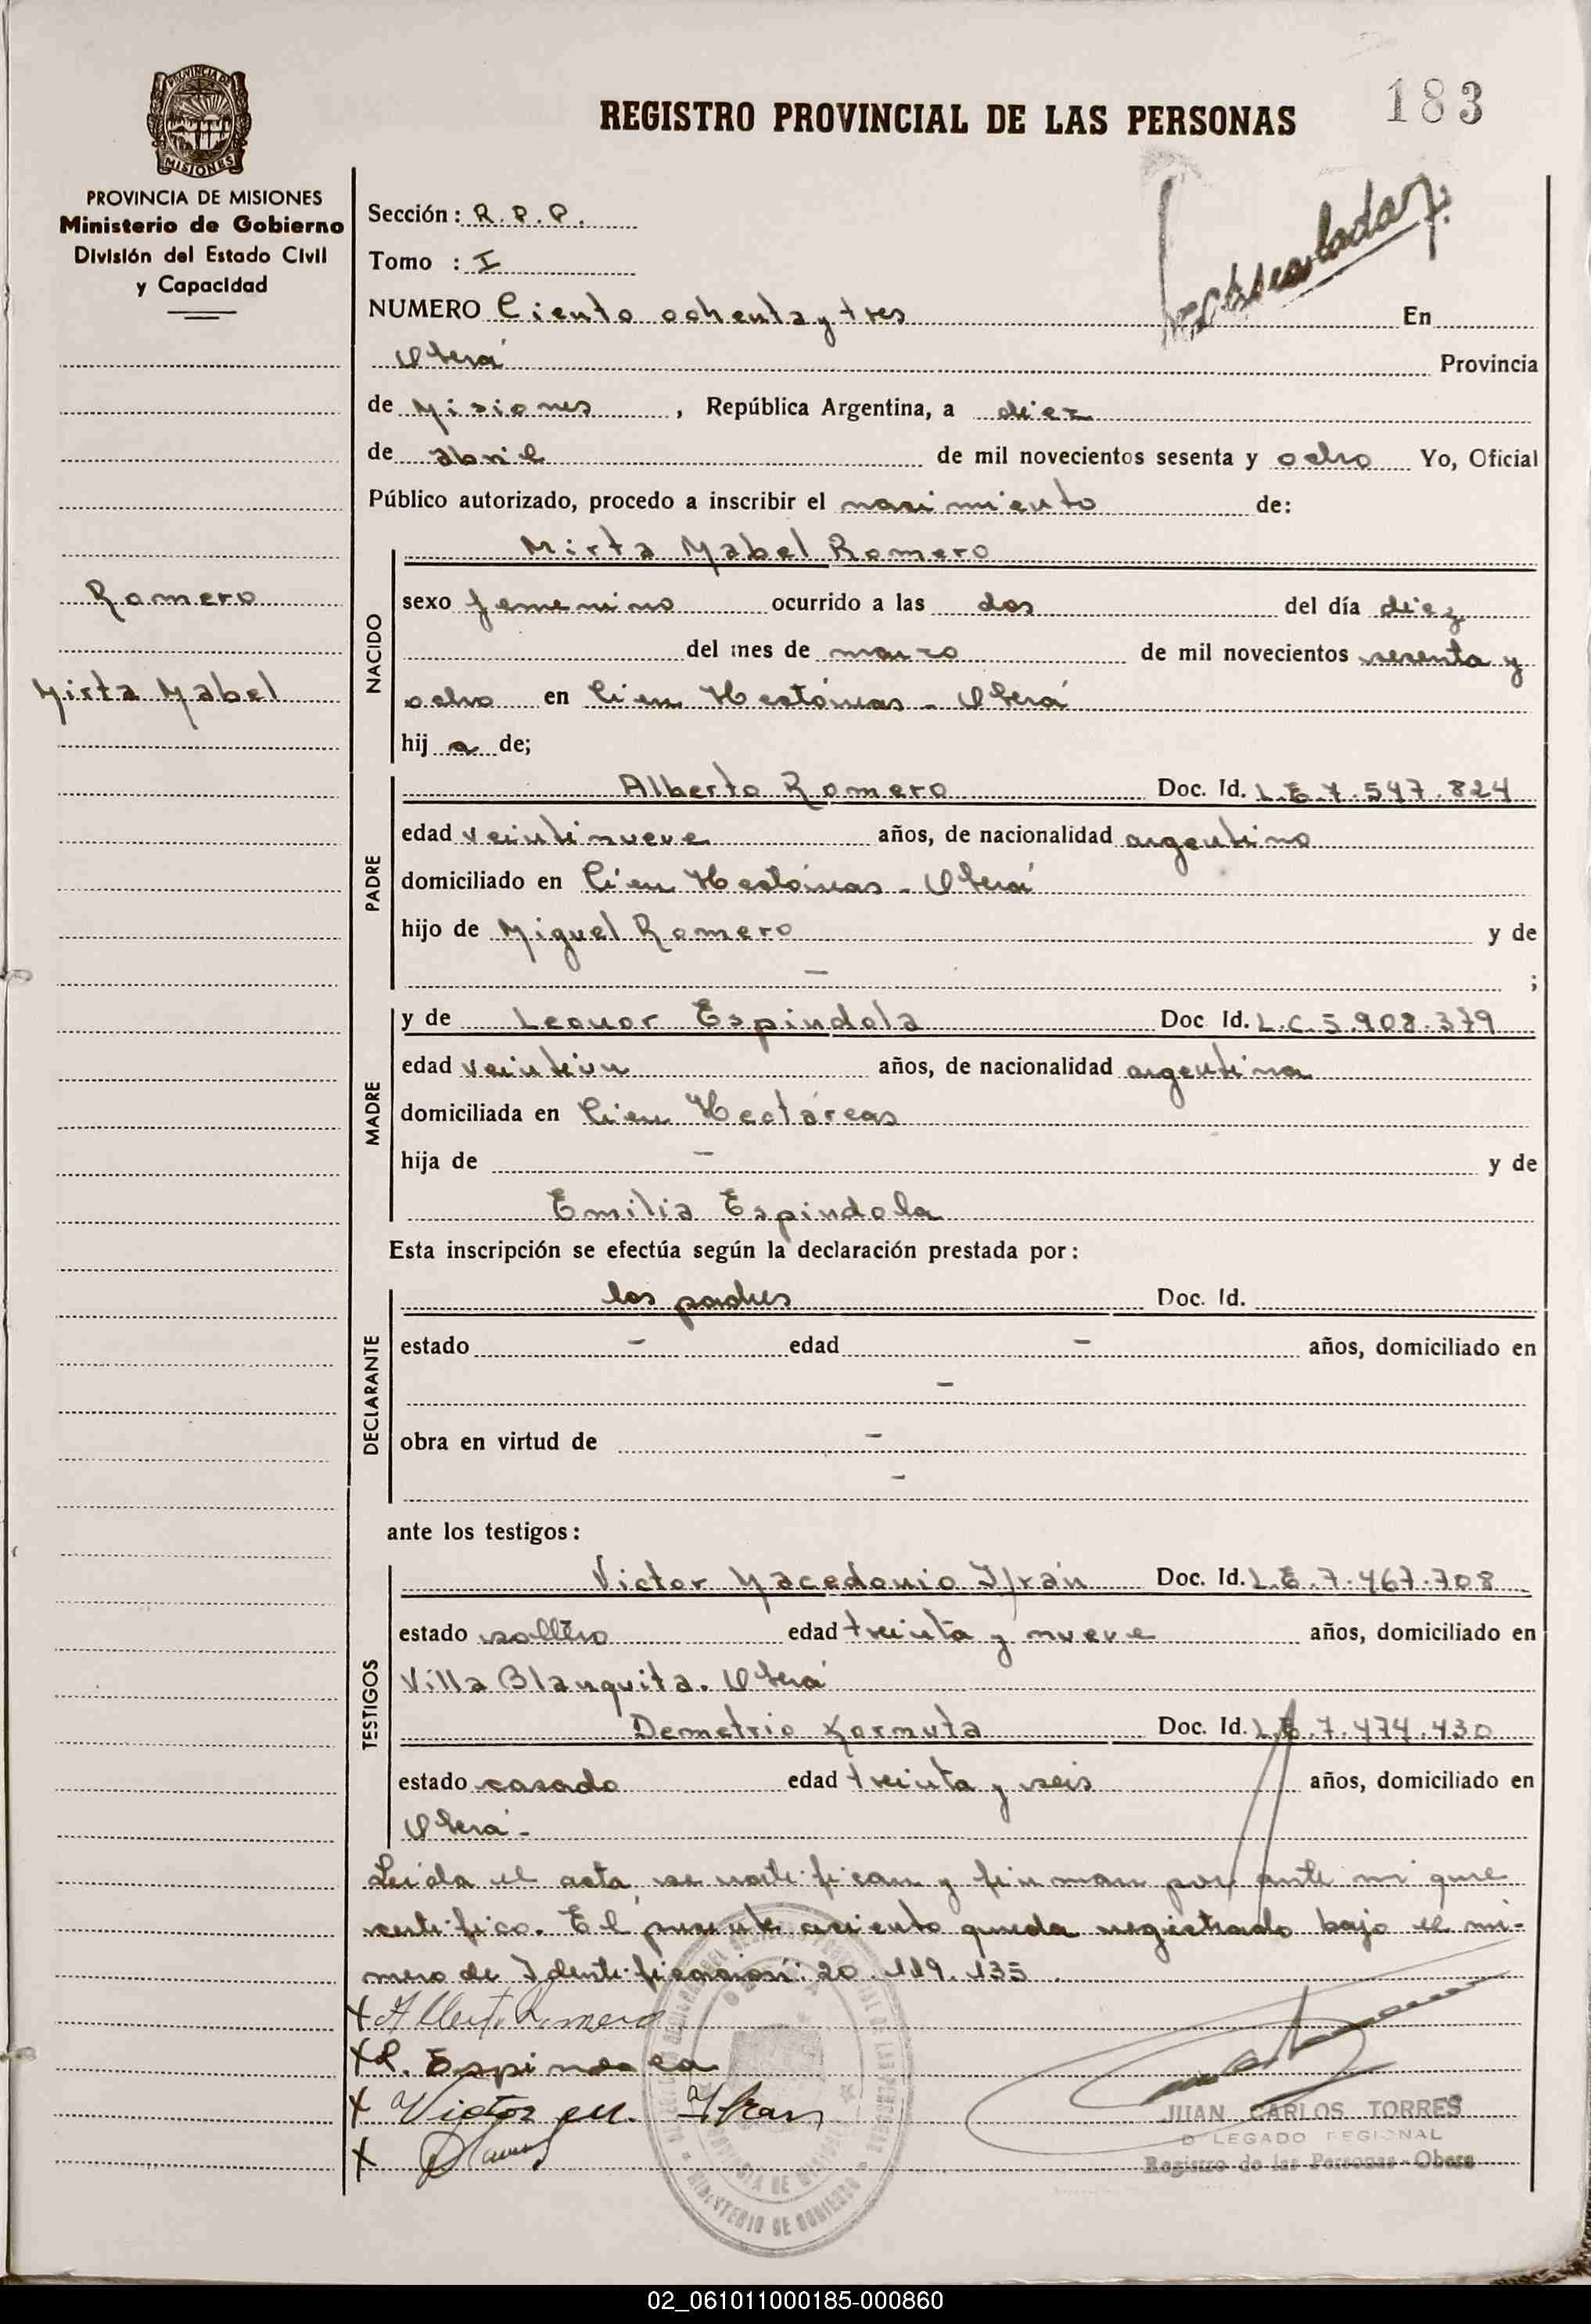 REGISTRO PROVINCIAL DE LAS PERSONAS
183
PROVINCIA DE MISIONES
MISIONES
PROVINCIA DE MISIONES
Ministerio de Gobierno
División del Estado Civil
y Capacidad
Sección: R.P.P.
Tomo : I
NUMERO Ciento ochenta y tres En
Oberá Provincia
de Misiones, República Argentina, a diez
de abril de mil novecientos sesenta y ocho Yo, Oficial
Público autorizado, procedo a inscribir el nacimiento de:
Romero
Mirta Mabel
NACIDO
Mirta Mabel Romero
sexo femenino ocurrido a las dos del día diez
del mes de marzo de mil novecientos sesenta y
ocho en Cien Hectáreas - Oberá
hij a de;
PADRE
Alberto Romero Doc. Id. L.E.7.547.824
edad veintinueve años, de nacionalidad argentino
domiciliado en Cien Hectáreas - Oberá
hijo de Miguel Romero y de
- ;
MADRE
y de Leonor Espindola Doc Id. L.C.5.908.379
edad veintiun años, de nacionalidad argentina
domiciliada en Cien Hectáreas
hija de - y de
Emilia Espindola
Esta inscripción se efectúa según la declaración prestada por:
DECLARANTE
los padres Doc. Id.
estado - edad - años, domiciliado en
-
obra en virtud de -
-
ante los testigos:
TESTIGOS
Victor Macedonio Ifrán Doc. Id. L.E.7.467.708
estado soltero edad treinta y nueve años, domiciliado en
Villa Blanquita. Oberá
Demetrio Kornuta Doc. Id. L.E.7.474.430
estado casado edad treinta y seis años, domiciliado en
Oberá -
Leida el acta, se ratifican y firman por ante mi que
certifico. El presente asiento queda registrado bajo el nú-
mero de Identificación: 20.119.135
X Alberto Romero
X L. Espindola
X Victor M. Ifran
X
JUAN CARLOS TORRES
DELEGADO REGIONAL
Registro de las Personas - Obera
MINISTERIO DE GOBIERNO
02_061011000185-000860